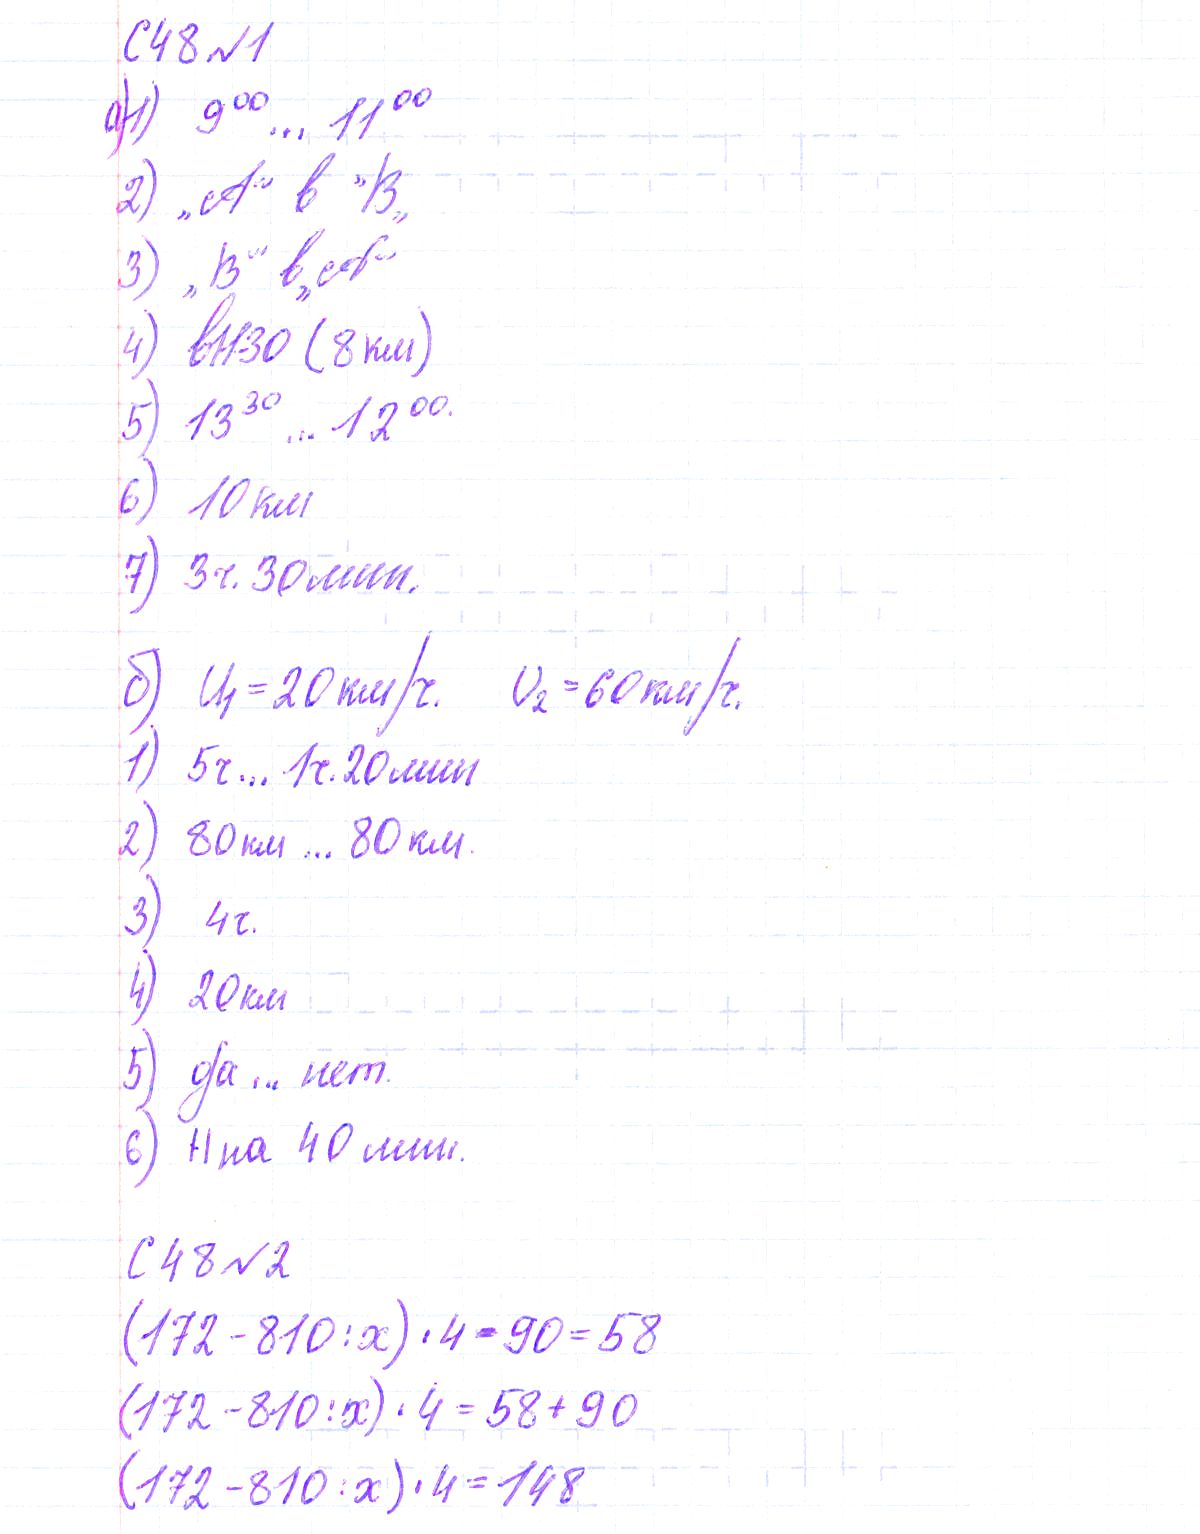 С48 №1
а)1) 9⁰⁰ ... 11⁰⁰
2) „А“ в "В„
3) „В“ в „А“
4) вН30 (8 км)
5) 13³⁰ ... 12⁰⁰.
6) 10 км
7) 3ч. 30 мин.
б) U₁ = 20 км/ч. U₂ = 60 км/ч.
1) 5ч ... 1ч. 20 мин
2) 80 км ... 80 км.
3) 4ч.
4) 20 км
5) да ... нет.
6) Н на 40 мин.
С48 №2
(172 - 810 : x) · 4 - 90 = 58
(172 - 810 : x) · 4 = 58 + 90
(172 - 810 : x) · 4 = 148